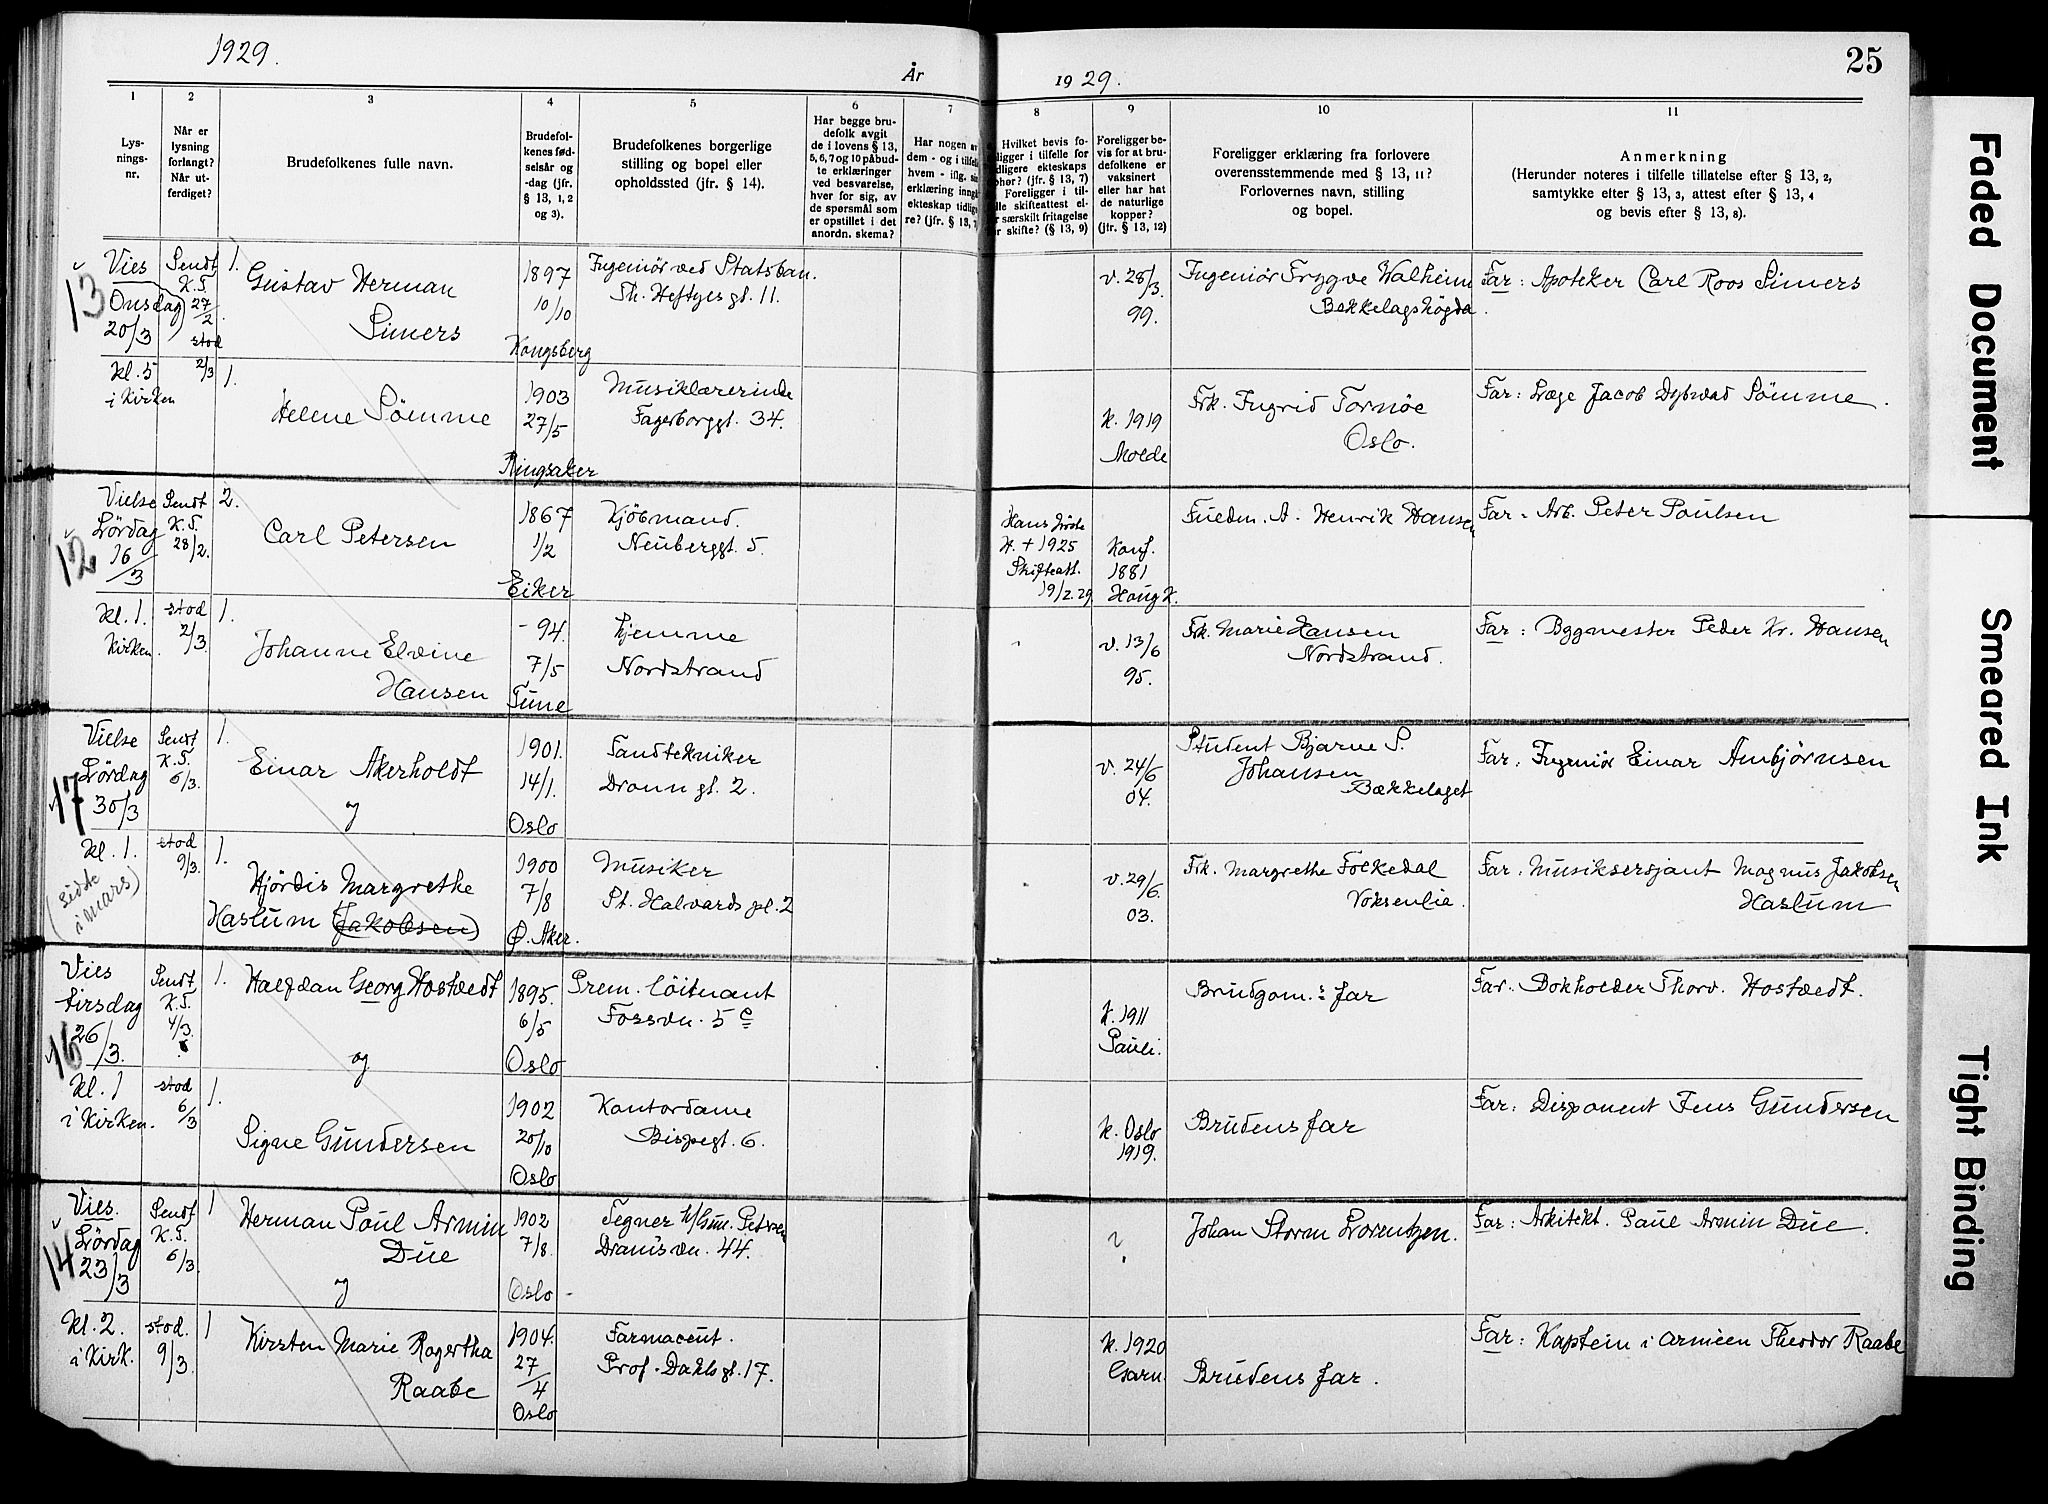 1929.
År
19 29.
25
1
2
3
4
5
6
7
8
9
10
11
Lys-
nings-
nr.
Når er
lysning
forlangt?
Når ut-
ferdiget?
Brudefolkenes fulle navn.
Brudefol-
kenes fød-
selsår og
-dag (jfr.
§ 13, 1, 2
og 3).
Brudefolkenes borgerlige
stilling og bopel eller
opholdssted (jfr. § 14).
Har begge bru-
defolk avgit
de i lovens § 13,
5, 6, 7 og 10 påbud-
te erklæringer
ved besvarelse,
hver for sig, av
de spørsmål som
er opstillet i det
anordn. skema?
Har nogen av
dem - og i tilfelle
hvem - iflg. sin
erklæring inngåt
ekteskap tidlige-
re? (jfr. § 13, 7
Hvilket bevis fo-
ligger i tilfelle for
dligere ekteskaps
phør? (jfr. § 13, 7)
Foreligger i til-
lle skifteattest el-
r særskilt fritagelse
r skifte? (§ 13, 9)
Foreligger be-
vis for at bru-
defolkene er
vaksinert
eller har hat
de naturlige
kopper?
(jfr. § 13, 12)
Foreligger erklæring fra forlovere
overensstemmende med § 13, 11?
Forlovernes navn, stilling
og bopel.
Anmerkning
(Herunder noteres i tilfelle tillatelse efter § 13, 2,
samtykke efter § 13, 3, attest efter § 13, 4
og bevis efter § 13, 8).
13
Vies
Onsdag
20/3
Kl. 5
i Kirken
Sendt
K.T.
27/2.
stod
2/3
1.
Gustav Herman
Simers
1897
10/10
Kongsberg
Ingeniør ved Statsban.
Th. Heftyes gt. 11.
v. 28/3.
99.
Ingeniør Trygve Walheim
Bekkelagshøgda.
Far: Apoteker Carl Roos Simers
1.
Helene Sömme
1903
27/5
Ringsaker
Musiklærerinde
Fagerborggt. 34.
K. 1919
Molde
Frk. Ingrid Tornöe
Oslo.
Far: Læge Jacob Dybwad Sömme.
12
Vielse
Lördag
16/3
Kl. 1.
Kirken.
Sendt
K.T.
28/2.
stod
2/3.
2.
Carl Petersen
1867
1/2
Eiker
Kjöbmand.
Neuberggt. 5.
K. + 1925
Skifteatt.
19/2.29
Konf.
1881
Haug K.
A. Henrik Hansen
Far: Arb. Peter Paulsen
1.
Johanne Elvine
Hansen
- 94.
7/5
Tune
hjemme
Nordstrand
v. 13/6
95.
Frk. Marie Hansen
Nordstrand.
Far: Byggmester Peder Kr. Hansen
17
Vielse
Lördag
30/3
Kl. 1.
(sidste
i mars)
Sendt
K.T.
6/3.
stod
9/3.
1.
Einar Akerholdt
og
1901.
14/1.
Oslo
Tandtekniker
Dronn gt. 2.
v. 24/6
04.
Student Bjarne S.
Johansen
Bækkelaget
Far: Ingeniör Einar Ambjörnsen
1.
Hjördis Margrethe
Haslum (Jakobsen)
1900
7/8
Ø. Aker.
Musiker
St. Halvards pl. 2
v. 29/6.
03.
Frk. Margrethe Folkedal
Voksenlia.
Far. Musiksersjant Magnus Jakobsen
Haslum
16
Vies
tirsdag
26/3.
Kl. 1
i Kirken.
Sendt
K.T.
4/3.
stod
6/3
1.
Halfdan Georg Hostvedt
og
1895.
6/5
Oslo
Prem. löitnant
Fossvn. 5 c
K. 1911
Pauli.
Brudgom.s far
Far: Dokholder Thorv. Hostvedt.
1.
Signe Gundersen
1902
20/10
Oslo
Kontordame
Bispegt. 6.
K. Oslo
1919.
Brudens far
Far: Disponent Jens Gundersen
14
Vies.
Lördag
23/3
Kl. 2.
i Kirk.
Sendt
K.T.
6/3.
stod.
9/3.
1
Herman Poul Armin
Due
og
1902
7/8.
Oslo -
Tegner
Dramsvn. 44.
?
Johan Storm Lorentzen.
Far: Arkitekt. Paul Armin Due.
1
Kirsten Marie Ragertha
Raabe
1904.
27/4
Oslo
Farmaceut.
Prof. Dahls gt. 17.
K. 1920
Garn.
Brudens far.
Far: Kaptein i Armeen Theodor Raabe
Faded Document
Smeared Ink
Tight Binding